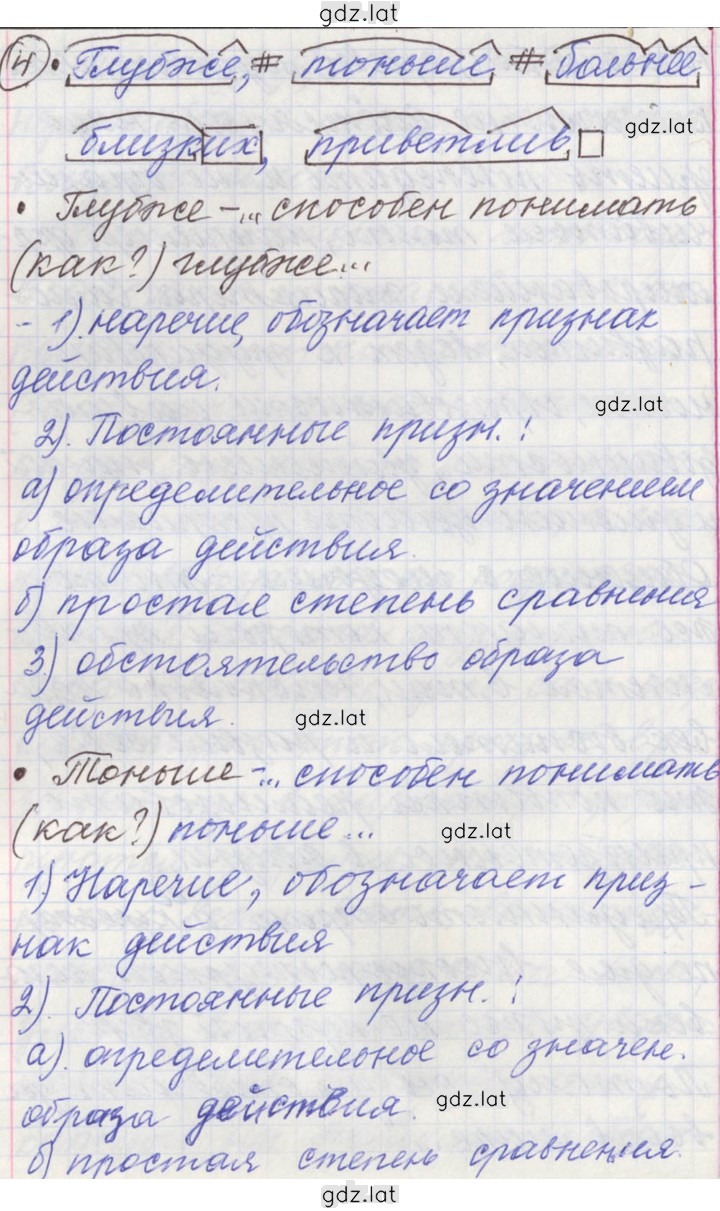 gdz.lat
4 • Глубже, # тоньше # больнее
gdz.lat
близких, приветлив
• Глубже -... способен понимать
(как?) глубже...
- 1) наречие, обозначает признак
действия.
gdz.lat
2). Постоянные призн.:
а) определительное со значением
образа действия.
б) простая степень сравнения
3) обстоятельство образа
действия.
gdz.lat
• Тоньше -... способен понимать
(как?) поньше...
gdz.lat
1) Наречие, обозначает приз-
нак действия
2). Постоянные призн.:
а). определительное со значен.
образа действия.
gdz.lat
б) простая степень сравнения.
gdz.lat